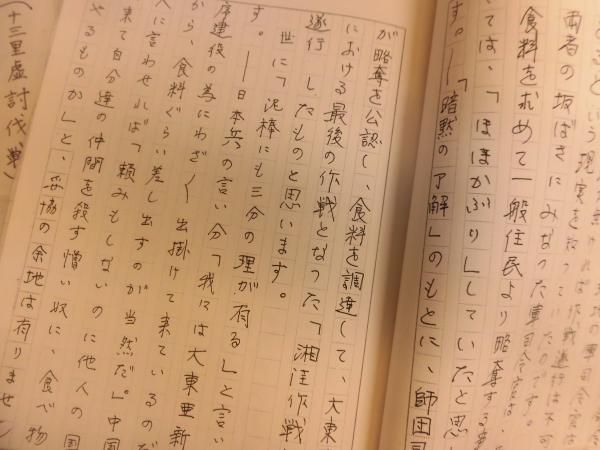 両者の板ばさみになった軍司令官は、
食料を求めて一般住民より略奪する
ては、「ほほかぶり」していたと思
す。―「暗黙の了解」のもとに、師団司
が略奪を公認し、食料を調達して、大東
における最後の作戦となった「湘桂作戦
遂行したものと思います。
世に「泥棒にも三分の理が有る」と言い
す。―日本兵の言い分「我々は大東亜新
序建設の為にわざ〱出掛けて来ているのだ
から、食料ぐらい差し出すのが当然だ。」中国
人に言わせれば「頼みもしないのに他人の国
来て自分達の仲間を殺す憎い奴に、食べ物
やるものか」と、妥協の余地は有りません
(十三里虚討伐